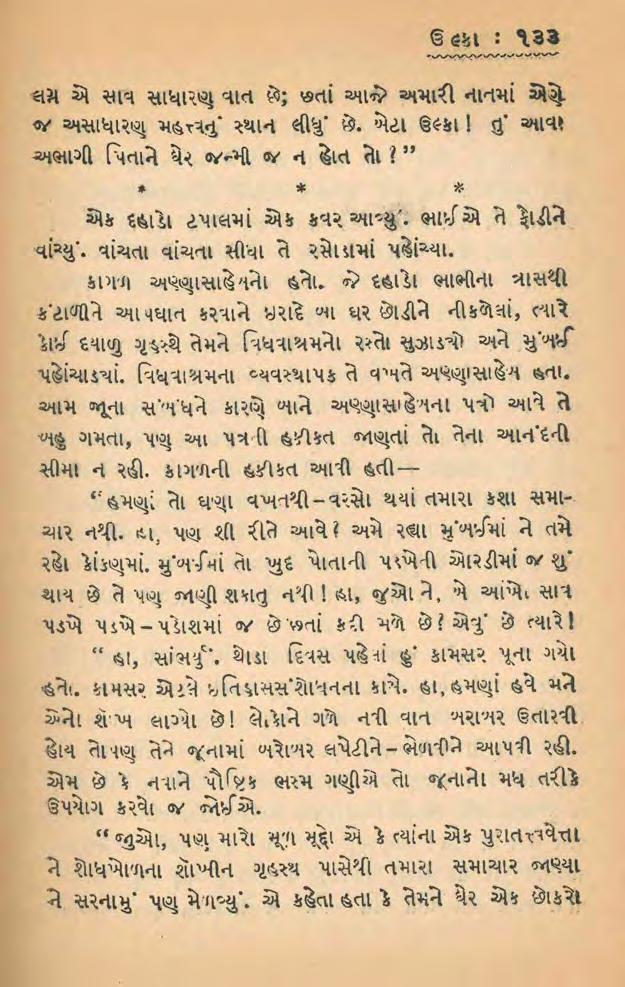 ઉલ્કા : ૧૩૩
લગ્ન એ સાવ સાધારણ વાત છે; છતાં આજે અમારી નાતમાં એણે
જ અસાધારણ મહત્ત્વનું સ્થાન લીધું છે. બેટા ઉલ્કા! તું આવા
અભાગી પિતાને ઘેર જન્મી જ ન હોત તો ?”
* * *
એક દહાડો ટપાલમાં એક કવર આવ્યું. ભાઈએ તે ફોડીને
વાંચ્યું. વાંચતા વાંચતા સીધા તે રસોડામાં પહોંચ્યા.
કાગળ અણ્ણાસાહેબનો હતો. જે દહાડો ભાભીના ત્રાસથી
કંટાળીને આપઘાત કરવાને ઇરાદે બા ઘર છોડીને નીકળેલાં, ત્યારે
કોઈ દયાળુ ગૃહસ્થે તેમને વિધવાશ્રમનો રસ્તો સુઝાડ્યો અને મુંબઈ
પહોંચાડ્યાં. વિધવાશ્રમના વ્યવસ્થાપક તે વખતે અણ્ણાસાહેબ હતા.
આમ જૂના સંબંધને કારણે બાને અણ્ણાસાહેબના પત્રો આવે તે
બહુ ગમતા, પણ આ પત્રની હકીકત જાણતાં તો તેના આનંદની
સીમા ન રહી. કાગળની હકીકત આવી હતી—
“હમણાં તો ઘણા વખતથી – વરસો થયાં તમારા કશા સમા-
ચાર નથી. હા, પણ શી રીતે આવે? અમે રહ્યા મુંબઈમાં ને તમે
રહો કોંકણમાં. મુંબઈમાં તો ખુદ પોતાની પડખેની ઓરડીમાં જ શું
થાય છે તે પણ જાણી શકાતુ નથી! હા, જુઓ ને, બે આંખો સાવ
પડખે પડખે – પડોશમાં જ છે છતાં કદી મળે છે? એવું છે ત્યારે!
“ હા, સાંભર્યું. થોડા દિવસ પહેલાં હું કામસર પૂના ગયો
હતો. કામસર એટલે ઇતિહાસસંશોધનના કામે. હા, હમણાં હવે મને
એનો શૅાખ લાગ્યો છે! લોકોને ગળે નવી વાત બરાબર ઉતારવી
હોય તોપણ તેને જૂનામાં બરોબર લપેટીને – ભેળવીને આપવી રહી.
એમ છે કે નવાને પૌષ્ટિક ભસ્મ ગણીએ તો જૂનાનો મધ તરીકે
ઉપયોગ કરવો જ જોઈએ.
“ જુઓ, પણ મારો મૂળ મૂદ્દો એ કે ત્યાંના એક પુરાતત્ત્વવેત્તા
ને શોધખોળના શૅાખીન ગૃહસ્થ પાસેથી તમારા સમાચાર જાણ્યા
ને સરનામું પણ મેળવ્યું. એ કહેતા હતા કે તેમને ઘેર એક છોકરો